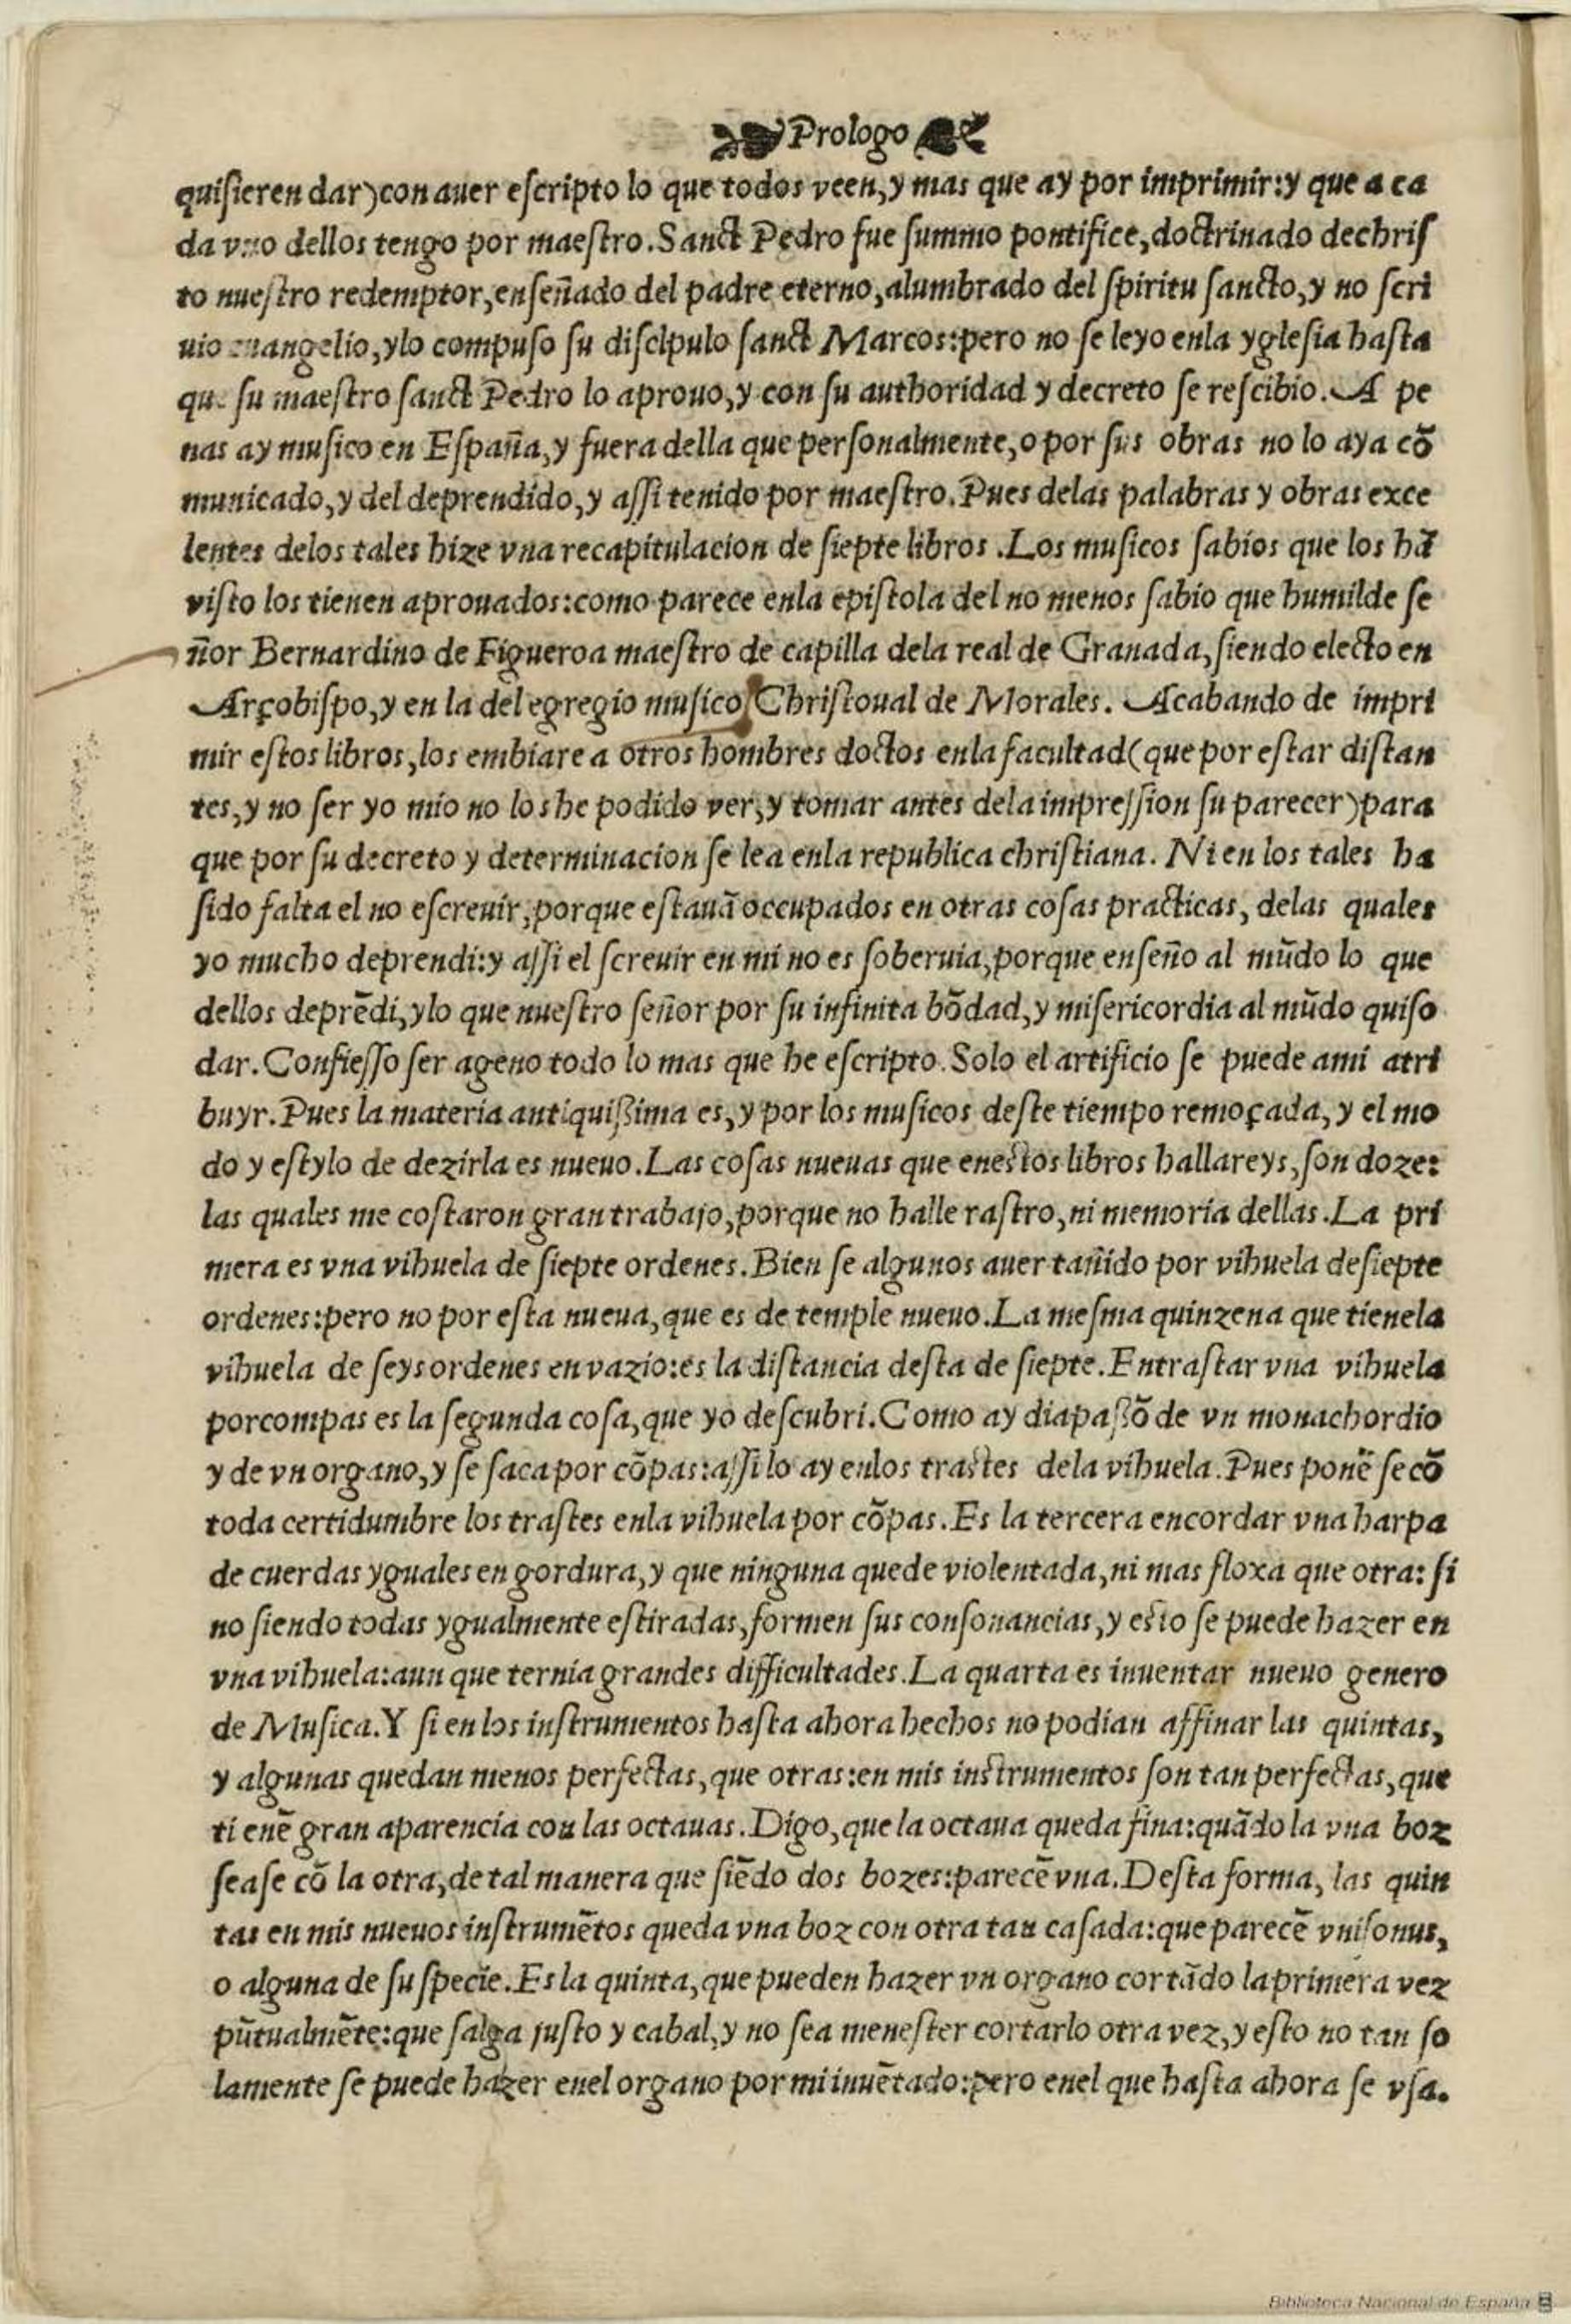 Prologo
quisieren dar) con auer escripto lo que todos veen, y mas que ay por imprimir: y que a ca
da vno dellos tengo por maestro. Sanct Pedro fue summo pontifice, doctrinado de chris
to nuestro redemptor, enseñado del padre eterno, alumbrado del spiritu sancto, y no scri
uio euangelio, y lo compuso su discipulo sanct Marcos: pero no se leyo enla yglesia hasta
que su maestro sanct Pedro lo aprouo, y con su authoridad y decreto se rescibio. A pe
nas ay musico en España, y fuera della que personalmente, o por sus obras no lo aya cõ
municado, y del deprendido, y assi tenido por maestro. Pues delas palabras y obras exce
lentes delos tales hize vna recapitulacion de siepte libros. Los musicos sabios que los hã
visto los tienen aprouados: como parece enla epistola del no menos sabio que humilde se
ñor Bernardino de Figueroa maestro de capilla dela real de Granada, siendo electo en
Arçobispo, y en la del egregio musico Christoual de Morales. Acabando de impri
mir estos libros, los embiare a otros hombres doctos enla facultad (que por estar distan
tes, y no ser yo mio no los he podido ver, y tomar antes dela impression su parecer) para
que por su decreto y determinacion se lea enla republica christiana. Ni en los tales ha
sido falta el no escreuir, porque estauã occupados en otras cosas practicas, delas quales
yo mucho deprendi: y assi el screuir en mi no es soberuia, porque enseño al mũdo lo que
dellos deprẽdi, y lo que nuestro señor por su infinita bõdad, y misericordia al mũdo quiso
dar. Confiesso ser ageno todo lo mas que he escripto. Solo el artificio se puede a mi atri
buyr. Pues la materia antiquißima es, y por los musicos deste tiempo remoçada, y el mo
do y estylo de dezirla es nueuo. Las cosas nueuas que enestos libros hallareys, son doze:
las quales me costaron gran trabajo, porque no halle rastro, ni memoria dellas. La pri
mera es vna vihuela de siepte ordenes. Bien se algunos auer tañido por vihuela de siepte
ordenes: pero no por esta nueua, que es de temple nueuo. La mesma quinzena que tiene la
vihuela de seys ordenes en vazio: es la distancia desta de siepte. Entrastar vna vihuela
por compas es la segunda cosa, que yo descubri. Como ay diapaßõ de vn monachordio
y de vn organo, y se saca por cõpas: assi lo ay enlos trastes dela vihuela. Pues ponẽ se cõ
toda certidumbre los trastes enla vihuela por cõpas. Es la tercera encordar vna harpa
de cuerdas yguales en gordura, y que ninguna quede violentada, ni mas floxa que otra: si
no siendo todas ygualmente estiradas, formen sus consonancias, y esto se puede hazer en
vna vihuela: aun que ternia grandes difficultades. La quarta es inuentar nueuo genero
de Musica. Y si en los instrumentos hasta ahora hechos no podian affinar las quintas,
y algunas quedan menos perfectas, que otras: en mis instrumentos son tan perfectas, que
tienẽ gran aparencia con las octauas. Digo, que la octaua queda fina: quãdo la vna boz
sease cõ la otra, de tal manera que siẽdo dos bozes: parecẽ vna. Desta forma, las quin
tas en mis nueuos instrumẽtos queda vna boz con otra tan casada: que parecẽ vnisonus,
o alguna de su specie. Es la quinta, que pueden hazer vn organo cortãdo la primera vez
pũtualmẽte: que salga justo y cabal, y no sea menester cortarlo otra vez, y esto no tan so
lamente se puede hazer enel organo por mi inuẽtado: pero enel que hasta ahora se vsa.
Biblioteca Nacional de España